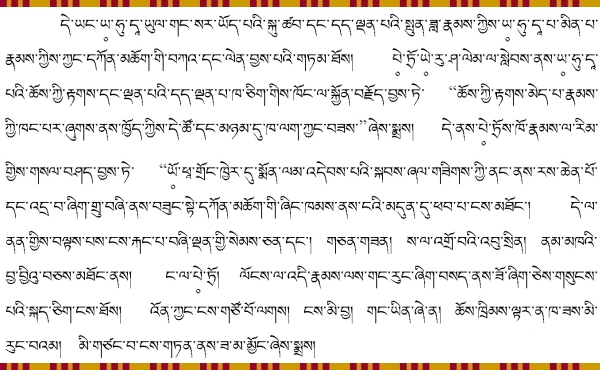 དེ་ཡང་ཡ༹་ཧུ་དཱ་ཡུལ་གང་སར་ཡོད་པའི་སྐུ་ཚབ་དང་དད་ལྡན་པའི་སྤུན་ཟླ་རྣམས་ཀྱིས་ཡ༹་ཧུ་དཱ་པ་མིན་པ་
རྣམས་ཀྱིས་ཀྱང་དཀོན་མཆོག་གི་བཀའ་དང་ལེན་བྱས་པའི་གཏམ་ཐོས། པེ༹་ཏྲོ་ཡེ༹་རུ་ཤ་ལེམ་ལ་སླེབས་ནས་ཡ༹་ཧུ་དཱ་
པའི་ཆོས་ཀྱི་རྟགས་དང་ལྡན་པའི་དད་ལྡན་པ་ཁ་ཅིག་གིས་ཁོང་ལ་སྐྱོན་བརྗོད་བྱས་ཏེ་ “ཆོས་ཀྱི་རྟགས་མེད་པ་རྣམས་
ཀྱི་ཁང་པར་ཞུགས་ནས་ཁྱོད་ཀྱིས་དེ་ཚོ་དང་མཉམ་དུ་ཁ་ལག་ཀྱང་བཟས་”ཞེས་སྨྲས། དེ་ནས་པེ༹་ཏྲོས་ཁོ་རྣམས་ལ་རིམ་
གྱིས་གསལ་བཤད་བྱས་ཏེ་ “ཡོ༹་ཕཱ་གྲོང་ཁྱེར་དུ་སྨོན་ལམ་འདེབས་པའི་སྐབས་ཞལ་གཟིགས་ཀྱི་ནང་ནས་རས་ཆེན་པོ་
དང་འདྲ་བ་ཞིག་གྲུ་བཞི་ནས་བཟུང་སྟེ་དཀོན་མཆོག་གི་ཞིང་ཁམས་ནས་ངའི་མདུན་དུ་ཕབ་པ་ངས་མཐོང་། དེ་ལ་
ནན་གྱིས་བལྟས་པས་ངས་རྐང་པ་བཞི་ལྡན་གྱི་སེམས་ཅན་དང་། གཅན་གཟན། ས་ལ་འགྲོ་བའི་འབུ་སྲིན། ནམ་མཁའི་
བྱ་བྱིའུ་བཅས་མཐོང་ནས། ང་ལ་པེ༹་ཏྲོ། ལོངས་ལ་འདི་རྣམས་ལས་གང་རུང་ཞིག་བསད་ནས་ཟོ་ཞིག་ཅེས་གསུངས་
པའི་སྐད་ཅིག་ངས་ཐོས། འོན་ཀྱང་ངས་གཙོ་བོ་ལགས། ངས་མི་བྱ། གང་ཡིན་ཞེ་ན། ཆོས་ཁྲིམས་ལྟར་ན་ཁ་ཟས་མི་
རུང་བའམ། མི་གཙང་བ་ངས་གཏན་ནས་ཟ་མ་མྱོང་ཞེས་སྨྲས།